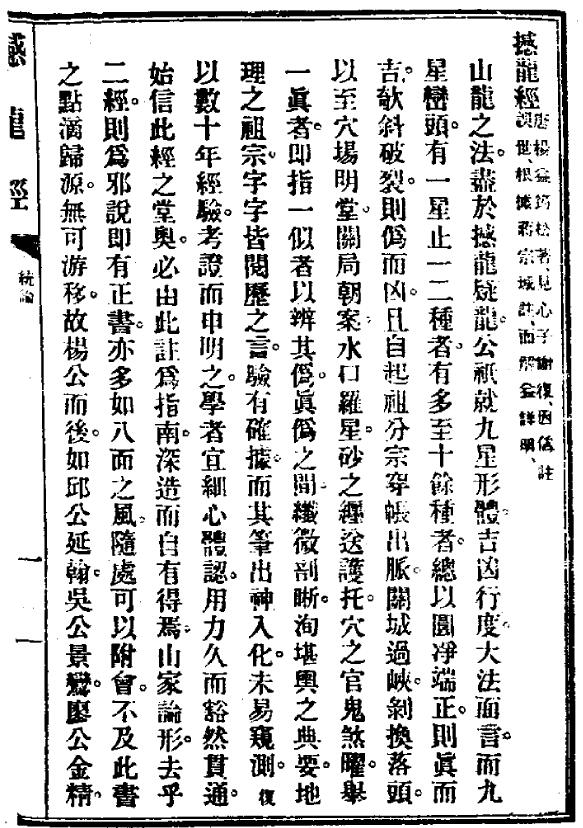 撼龍經
唐楊益筠松著、見心子謝復、因舊註
根據蔣宗城註、而解益詳明、
山龍之法。盡於撼龍疑龍。公祇就九星形體。吉凶行度大法而言。而九
星巒頭。有一星止一二種者。有多至十餘種者。總以圓淨端正。則眞而
吉。欹斜破裂。則僞而凶。且自起祖分宗。穿帳出脈。關城過峽。剝換落頭。
以至穴場明堂。關局朝案。水口羅星。砂之纒送護托。穴之官鬼煞曜。舉
一眞者。即指一似者以辨其僞。眞僞之間。纖微剖晰。洵堪輿之典要。地
理之祖宗。字字皆閱歷之言。驗有確據。而其筆出神入化。未易窺測。復
以數十年經驗。考證而申明之。學者宜細心體認。用力久而豁然貫通。
始信此經之堂奧。必由此註爲指南。深造而自有得焉。山家論形。去乎
二經。則爲邪說。即有正書。亦多如八面之風。隨處可以附會。不及此書
之點滴歸源。無可游移。故楊公而後。如邱公延翰。吳公景鸞。廖公金精。
撼龍經
統論
一